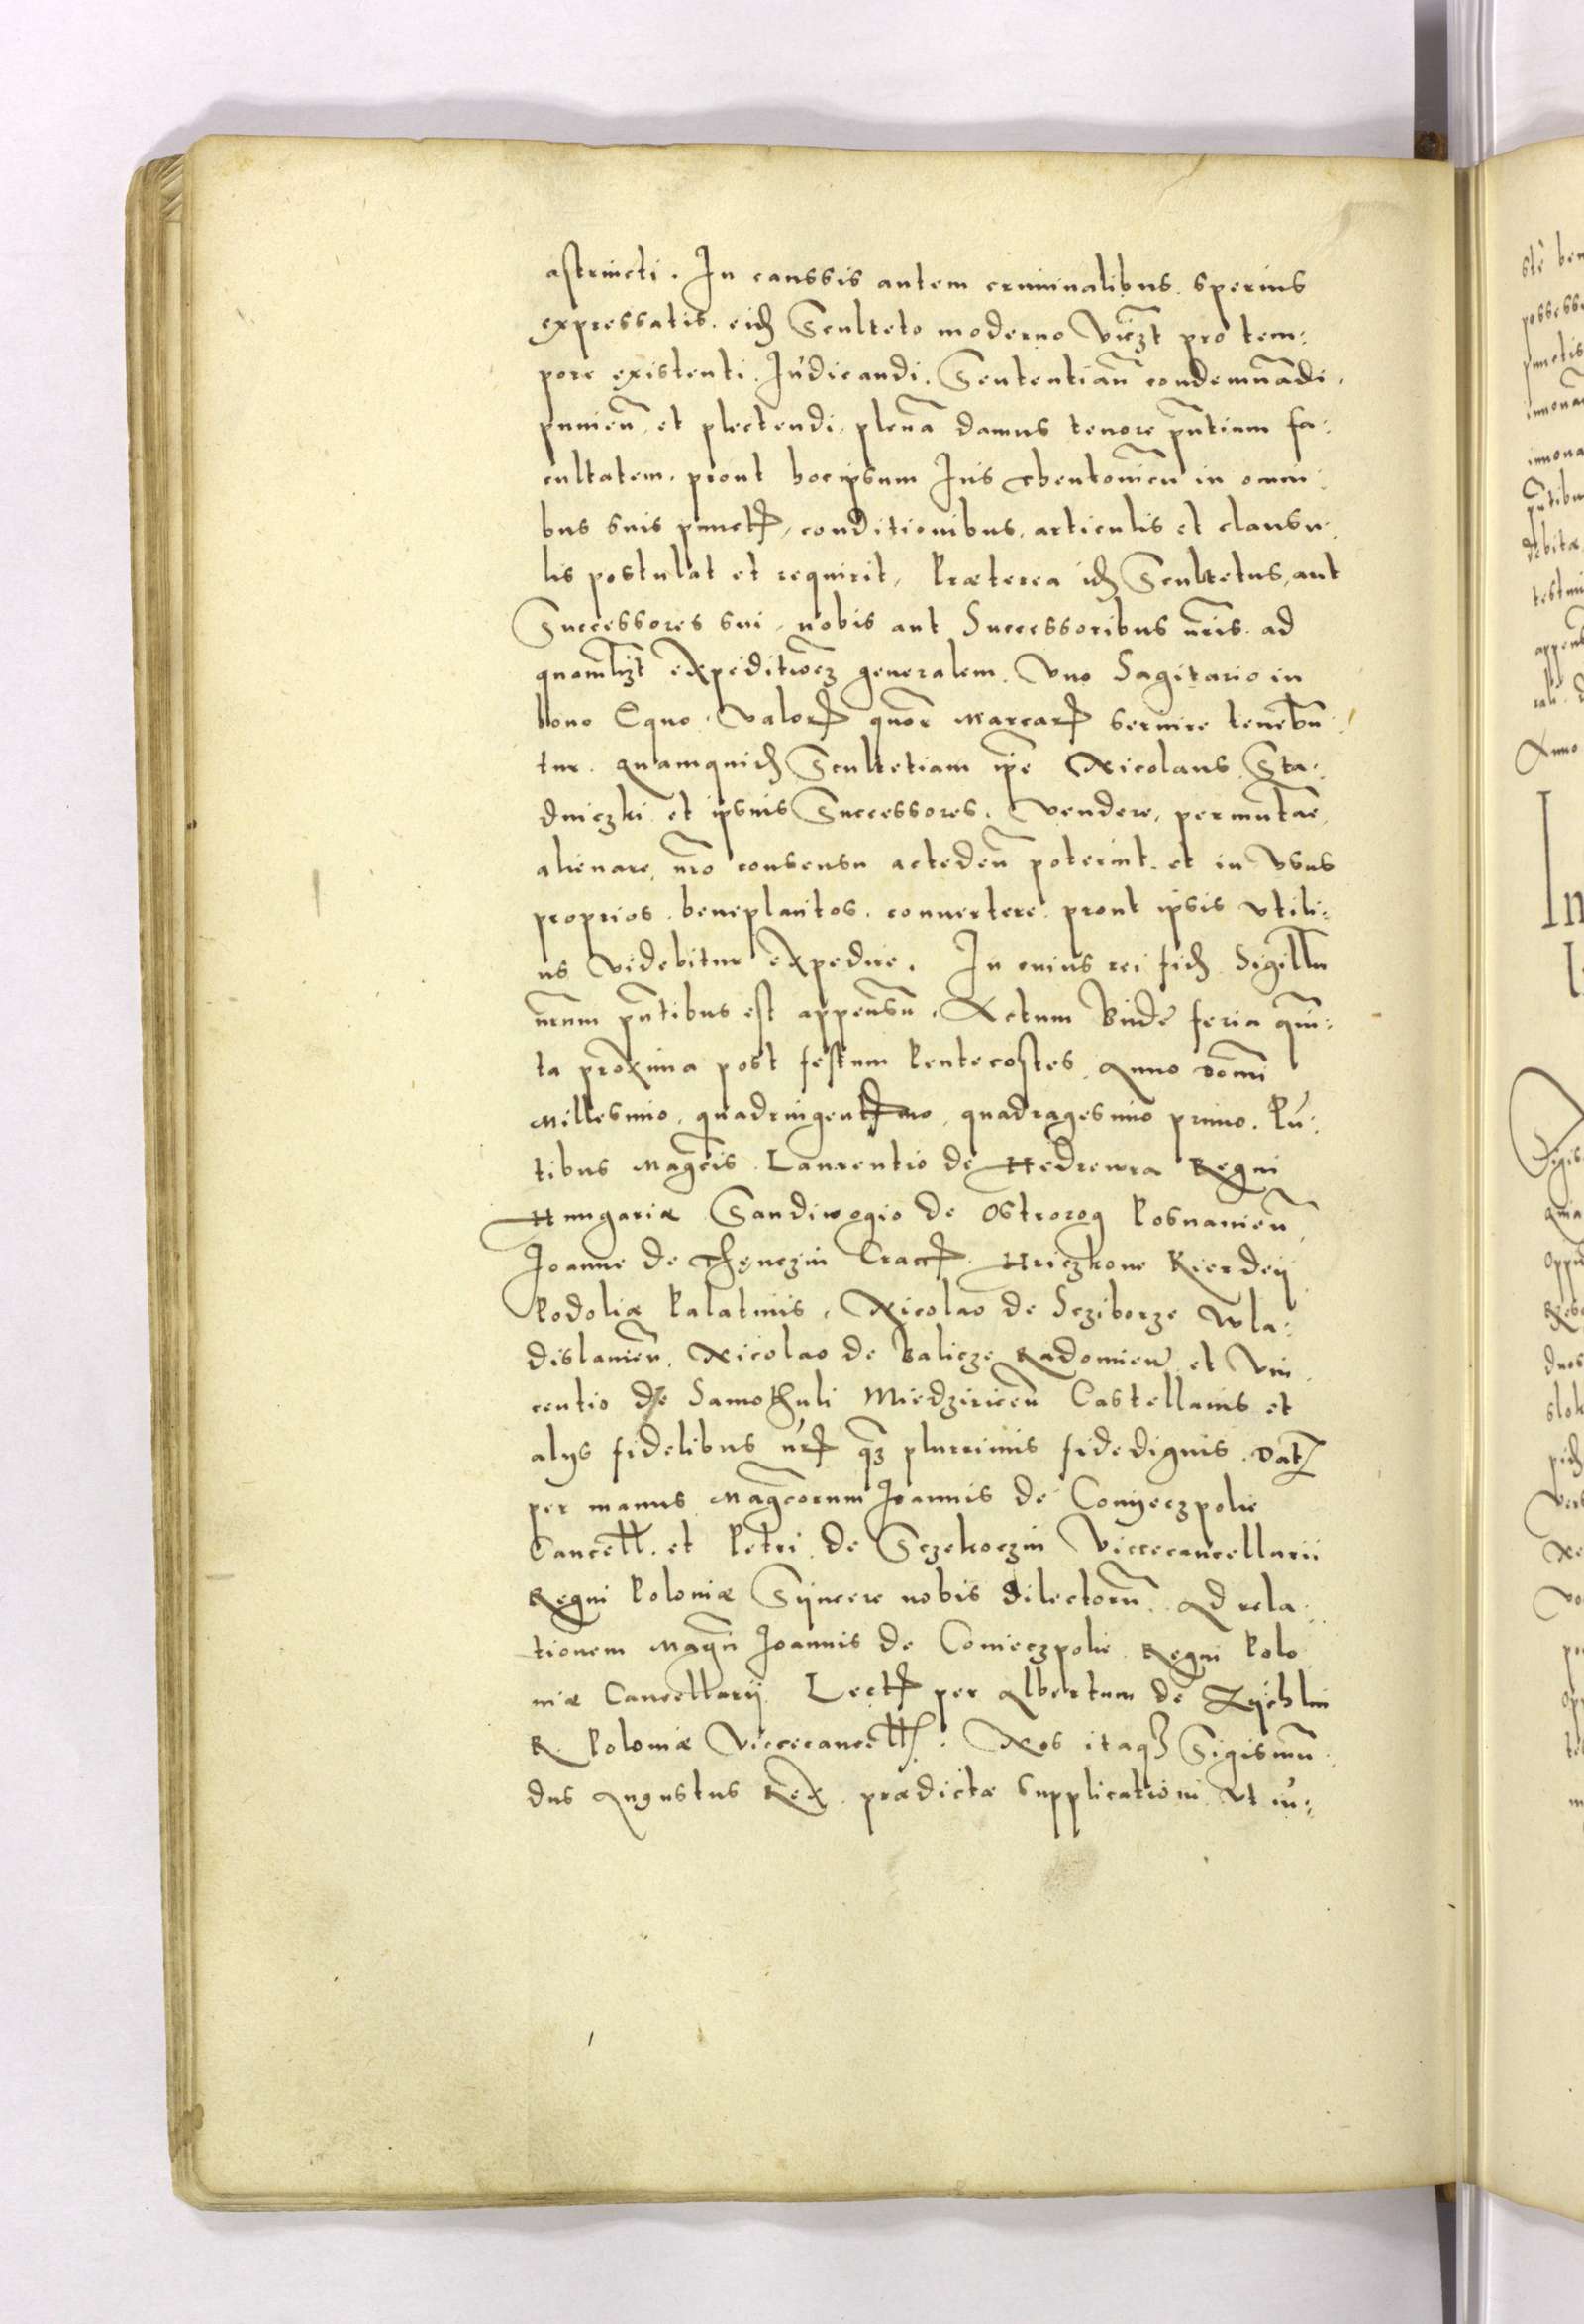 astricti. In caussis autem criminalibus sperius
expressatis. eidē Sculteto moderno viczt pro tem:
pore existenti. Iudicandi. Sententiañ condemnādi,
punieñ, et plectendi, plenā damus tenore pñtium fa:
cultatem. prout hoc ipsum Ius Theutonicū in omni:
bus suis punctꝭ, conditionibus, articulis et clausu:
lis postulat et requirit, Præterea idē Scultetus, aut
Successores sui, nobis aut Successoribus nr̃is. ad
quamlibꝫt expeditiõeꝫ generalem. Vno Sagitario in
bono Equo, valorꝭ quor̃ Marcarꝭ seruire tenebũ:
tur. quamquidē Scultetiam ip̃e Nicolaus Sta:
dniczki et ipsius Successores. vendere, permutar̃e,
alienare, nr̃o consensu accedeñ poterint. et in vsus
proprios. beneplacitos. conuertere. prout ipsis vtili:
us videbitur expedire. In cuius rei fidē Sigillũ
nr̃um pñtibus est appensũ. Actum Budē feria quĩ:
ta proxima post festum Pentecostes. Anno Domĩ
Millesimo, quadringentꝭmo, quadragesimo primo. Pñ:
tibus Mag̃cis Laurentio de Hedrewra Regni
Hungariæ Sandiwogio de Ostrorog Posnanieñ,
Ioanne de Thęnczin Craccꝭ. Hriczkone Kierdeij
Podoliæ Palatinis, Nicolao de Scziborze Wla:
dislauieñ, Nicolao de Balicze Radomieñ et Vin:
centio de Samothuli Miedziriceñ Castellanis et
alijs fidelibus nr̃ꝭ qꝫ plurimis fidedignis. Datꝫ
per manus Mag̃corum Ioannis de Conyeczpolie
Cancell. et Petri de Sczekoczin Viccecancellarii
Regni Poloniæ Sijncere nobis dilectorũ. Ad rela:
tionem Mag̃ci Ioannis de Conieczpolie Regni Polo
niæ Cancellarij Lectꝭ per Albertum de Zijchlin
R. Poloniæ Viccecancellꝭ. Nos itaqꝫ Sigismũ:
dus Augustus Rex. prædictæ supplicationi vt iu: